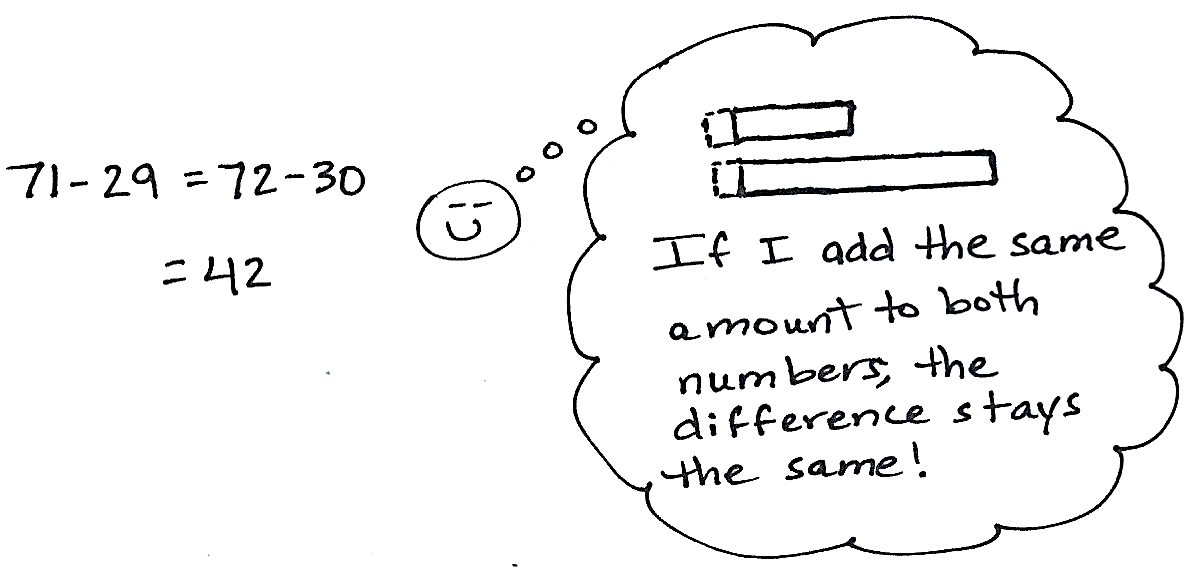 71-29 = 72-30
= 42
If I add the same
amount to both
numbers, the
difference stays
the same!